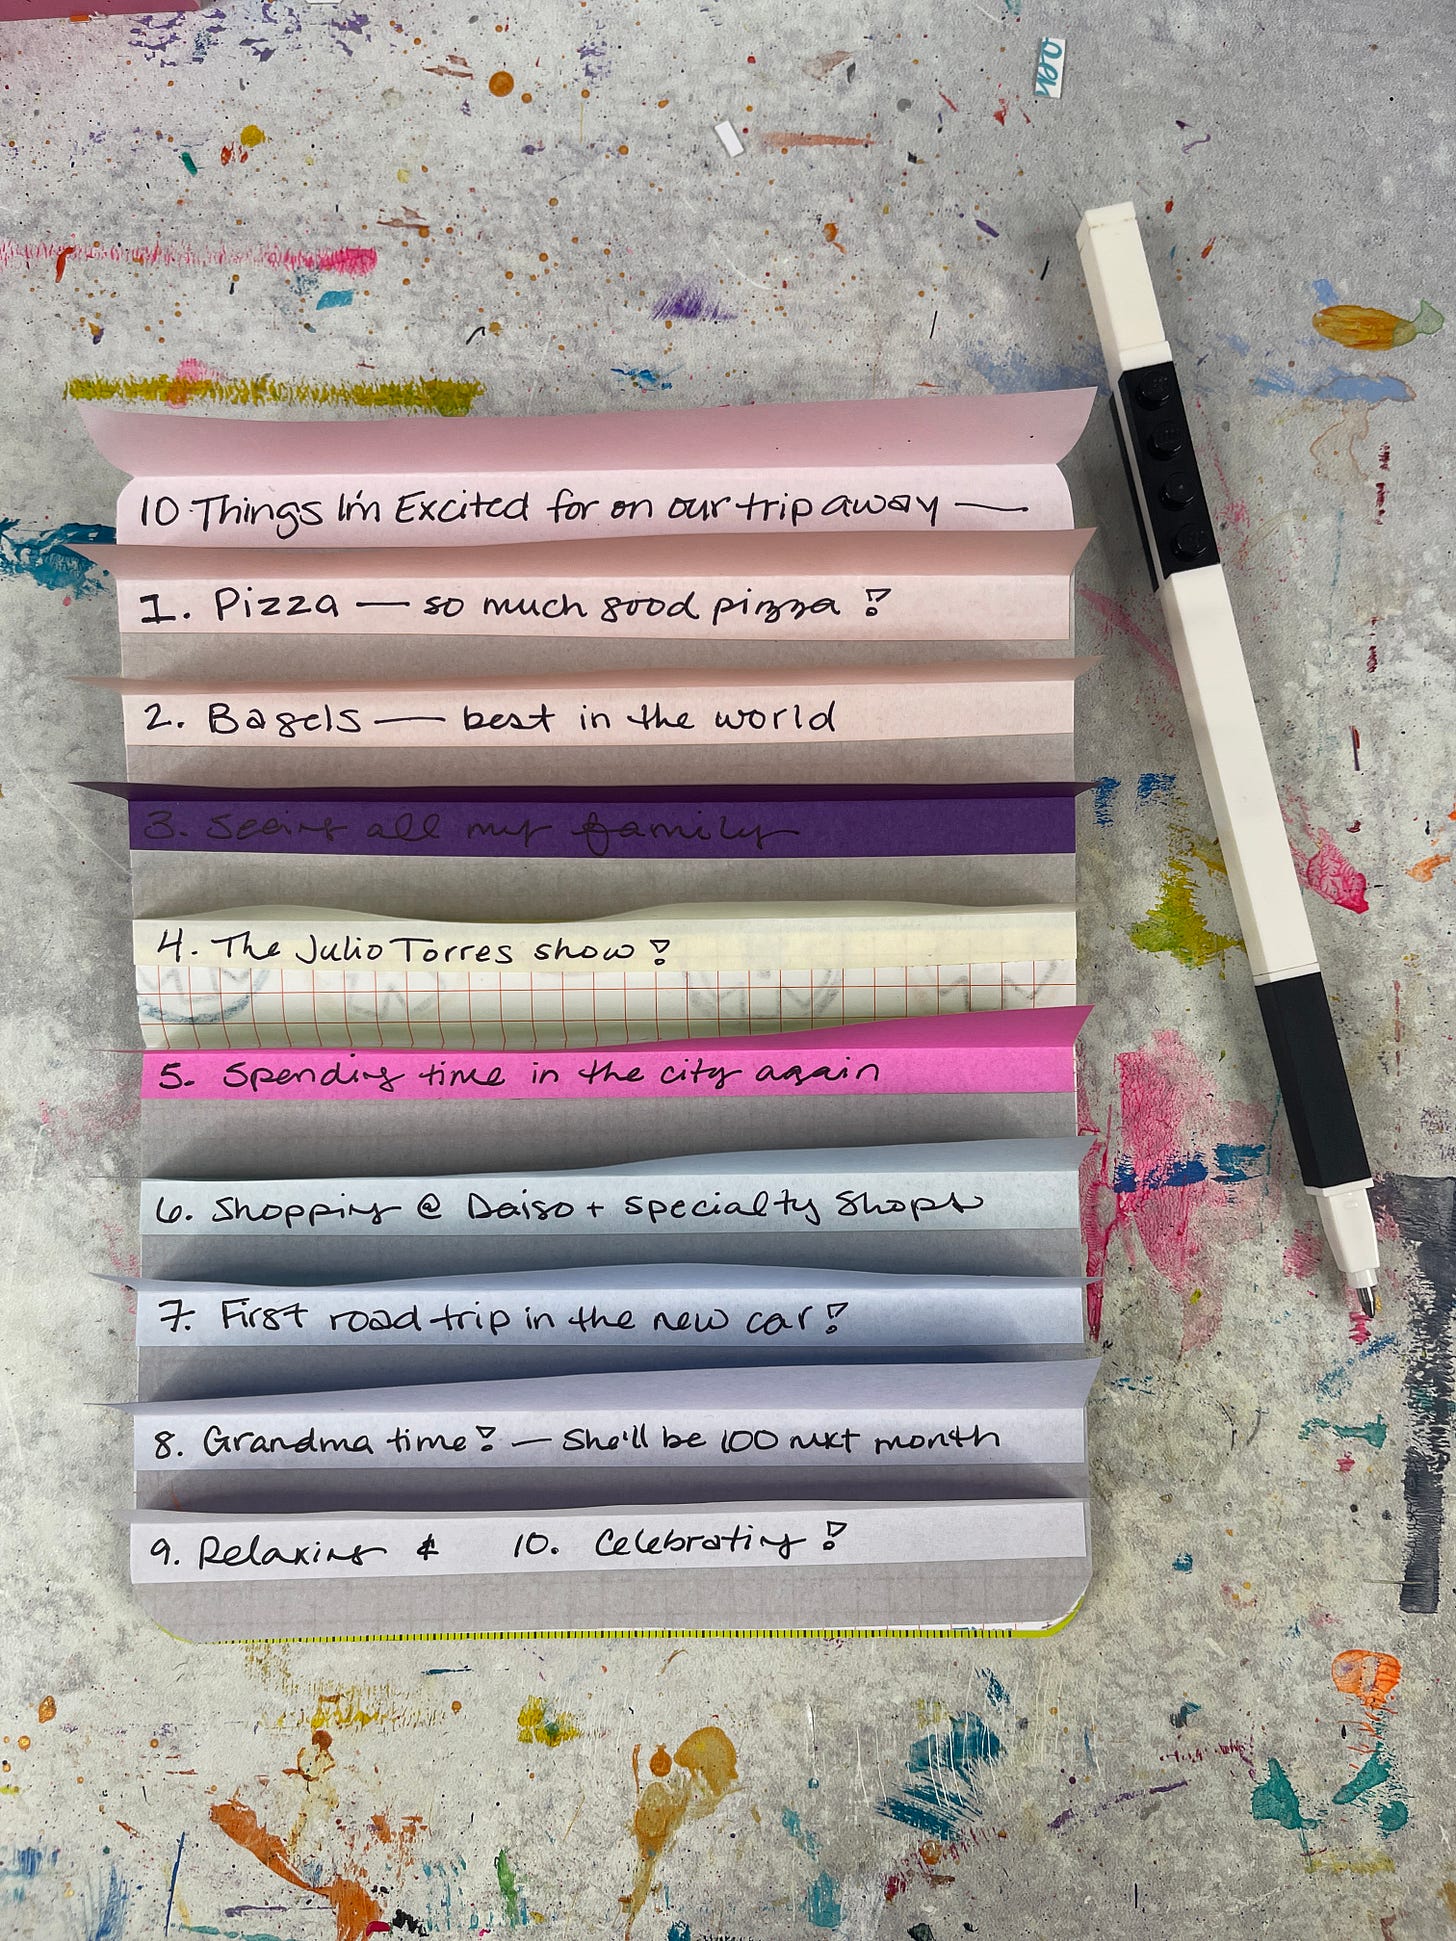 10 Things I'm Excited for on our trip away —
1. Pizza — so much good pizza!
2. Bagels — best in the world
3. Seeing all my family
4. The Julio Torres show!
5. Spending time in the city again
6. Shopping @ Daiso + specialty shops
7. First road trip in the new car!
8. Grandma time! — She'll be 100 next month
9. Relaxing & 10. Celebrating!